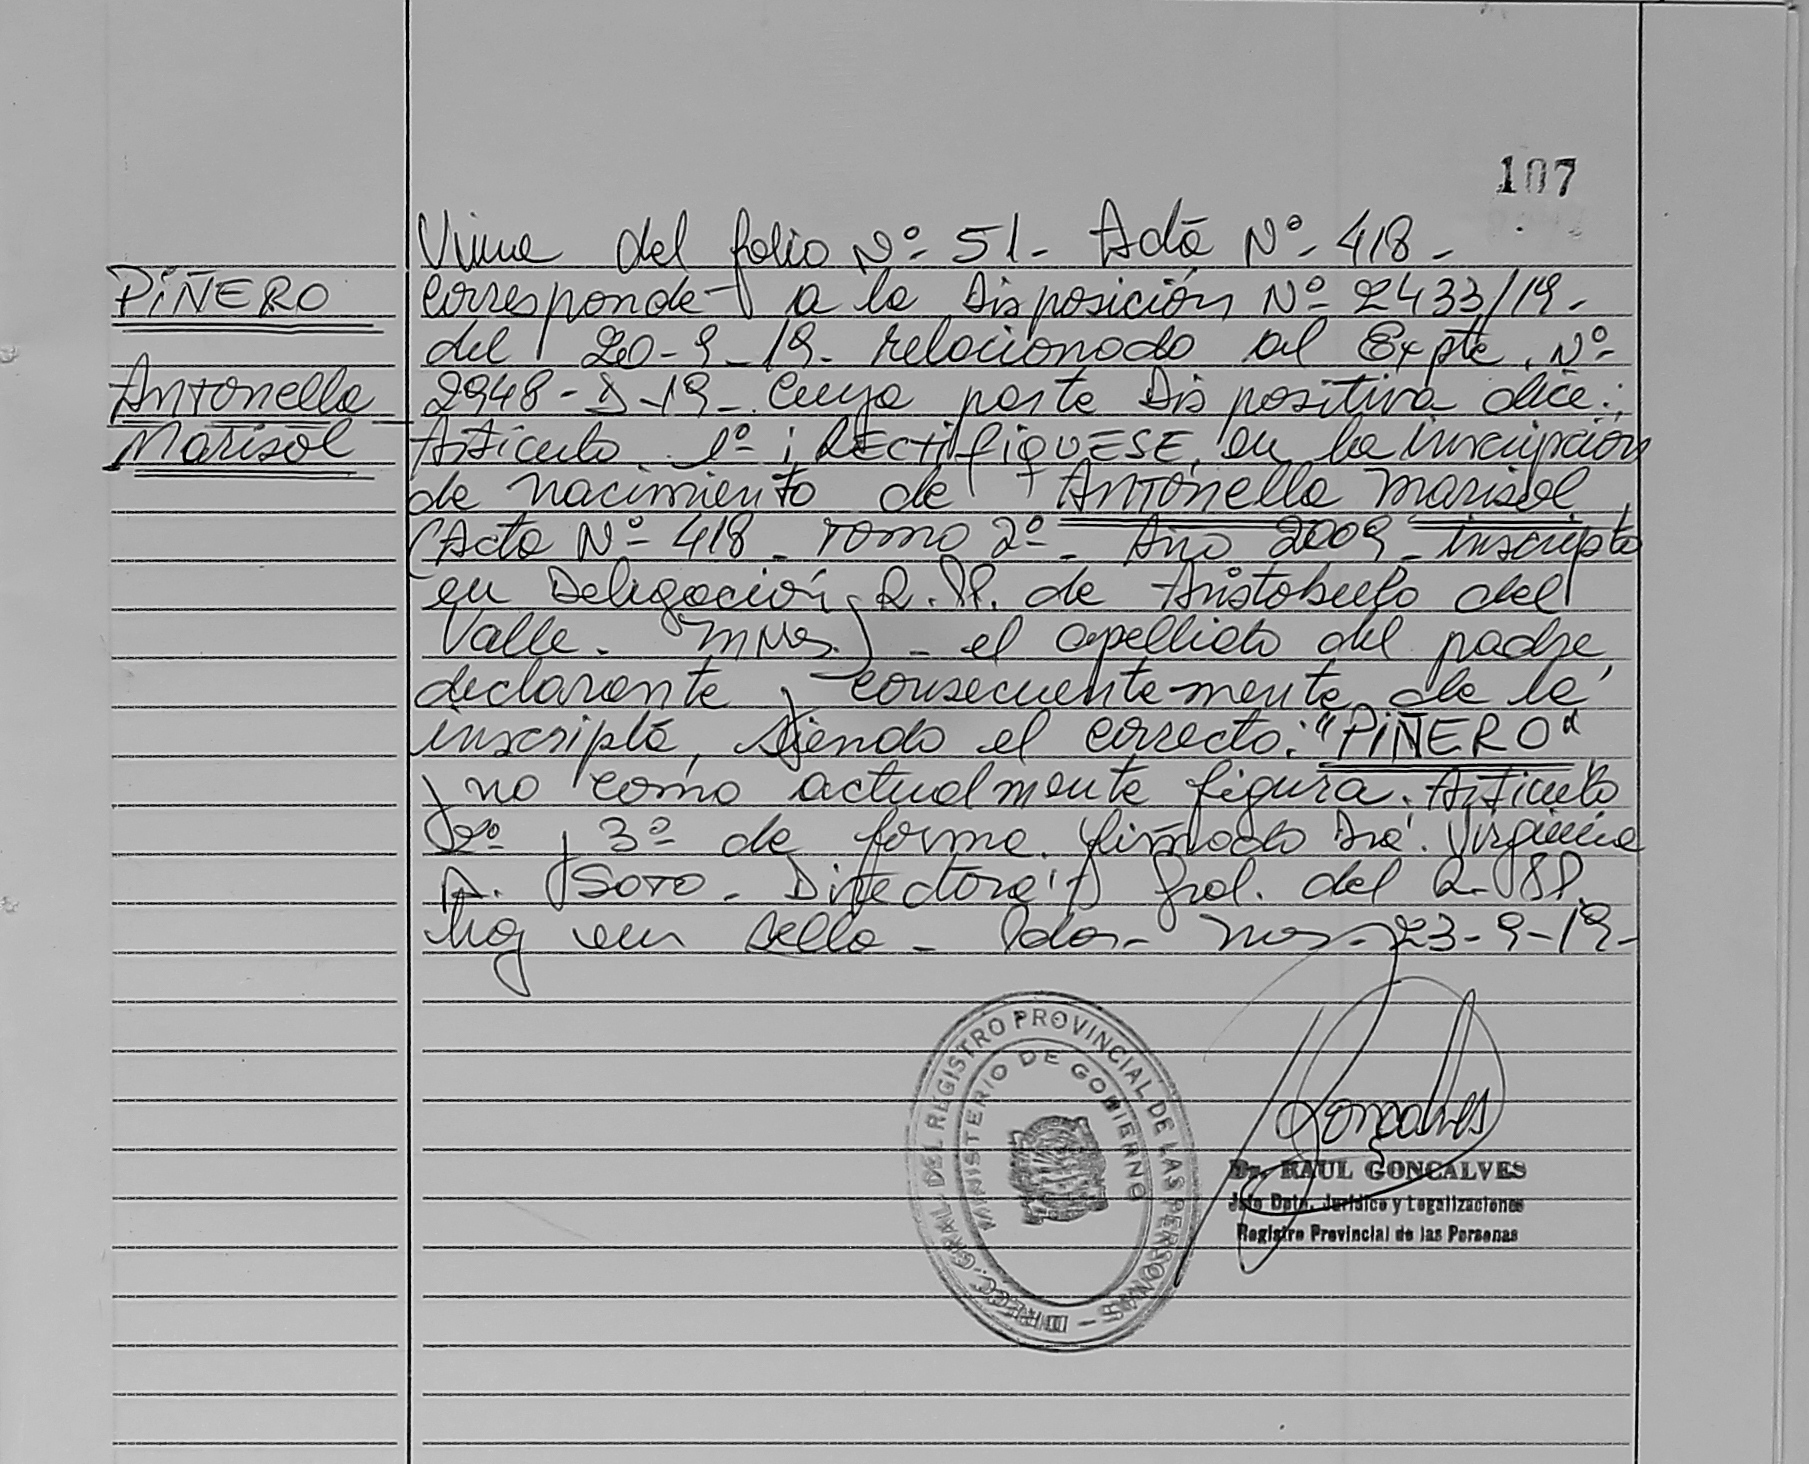 107
Viene del folio Nº 51 - Acta Nº 418 -
PIÑERO
corresponde a la Disposición Nº 2433/19 -
del 20-9-19. relacionado al Expte. Nº
Antonella
2948-D-19- Cuya parte Dispositiva dice:
Marisol
Artículo 1º: RECTIFIQUESE, en la inscripción
de nacimiento de Antonella Marisol
(Acta Nº 418 - Tomo 2º - Año 2009 - inscripta
en Delegación R.PP. de Aristobulo del
Valle - Mnes.) - el apellido del padre
declarante y consecuentemente de la
inscripta, siendo el correcto: "PIÑERO"
y no como actualmente figura. Artículo
2º y 3º de forma. firmado Dra. Virginia
A. SOTO - Directora Gral. del R.PP.
hay un sello - Pdas - Mnes - 23-9-19 -
Goncalves
DIRECC. GRAL. DEL REGISTRO PROVINCIAL DE LAS PERSONAS -
MINISTERIO DE GOBIERNO
Dr. RAUL GONCALVES
Jefe Dpto. Jurídico y Legalizaciones
Registro Provincial de las Personas